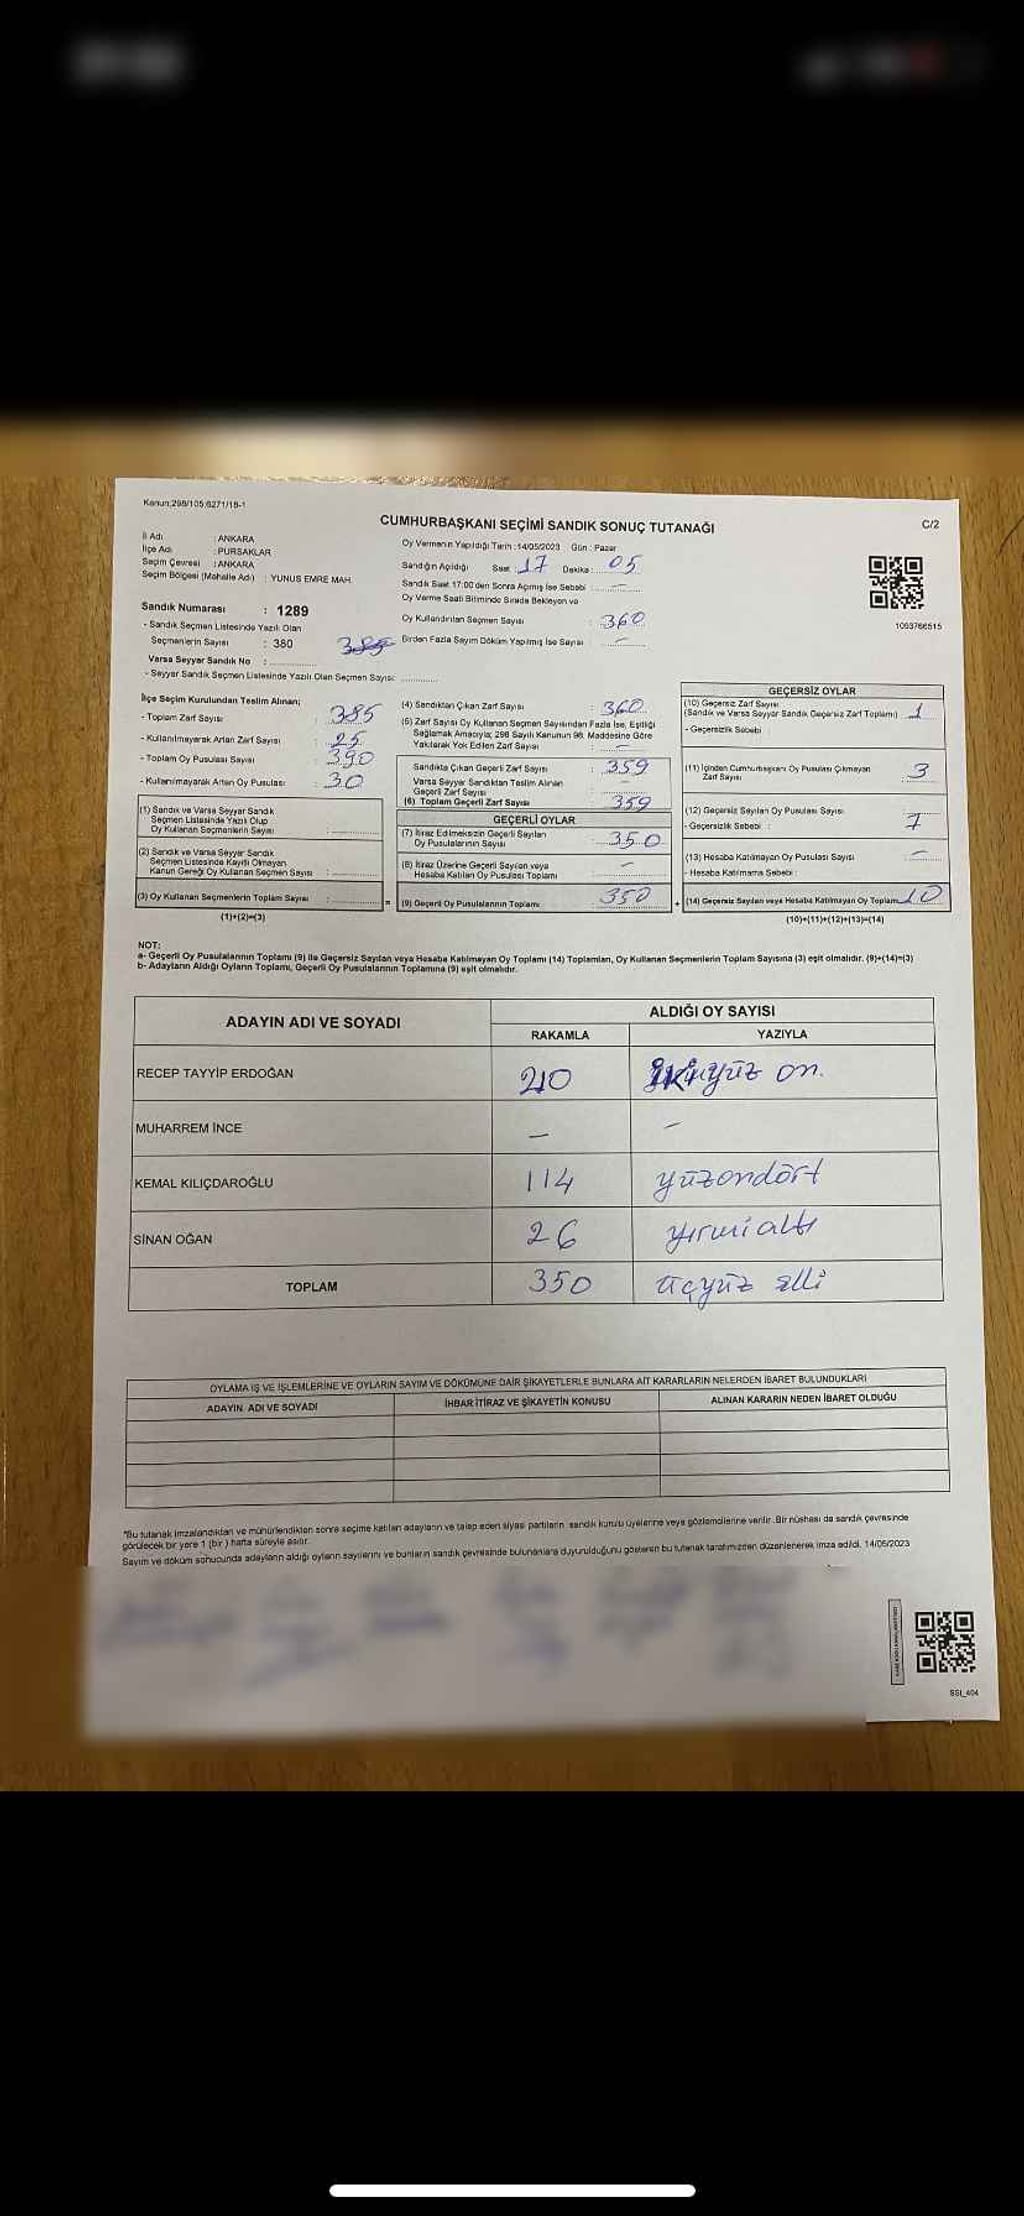 Kanun:298/105,6271/18-1
CUMHURBAŞKANI SEÇİMİ SANDIK SONUÇ TUTANAĞI
C/2
İl Adı : ANKARA
İlçe Adı : PURSAKLAR
Seçim Çevresi : ANKARA
Seçim Bölgesi (Mahalle Adı) : YUNUS EMRE MAH.
Oy Vermenin Yapıldığı Tarih :14/05/2023 Gün : Pazar
Sandığın Açıldığı Saat : 17 Dakika : 05
Sandık Saat 17:00'den Sonra Açılmış İse Sebebi : —
Oy Verme Saati Bitiminde Sırada Bekleyen ve
Oy Kullandırılan Seçmen Sayısı : 360
Birden Fazla Sayım Döküm Yapılmış İse Sayısı : —
1093766515
Sandık Numarası : 1289
- Sandık Seçmen Listesinde Yazılı Olan
Seçmenlerin Sayısı : 380 385
Varsa Seyyar Sandık No :
- Seyyar Sandık Seçmen Listesinde Yazılı Olan Seçmen Sayısı:
İlçe Seçim Kurulundan Teslim Alınan;
- Toplam Zarf Sayısı : 385
- Kullanılmayarak Artan Zarf Sayısı : 25
- Toplam Oy Pusulası Sayısı : 390
- Kullanılmayarak Artan Oy Pusulası : 30
(1) Sandık ve Varsa Seyyar Sandık
Seçmen Listesinde Yazılı Olup
Oy Kullanan Seçmenlerin Sayısı :
(2) Sandık ve Varsa Seyyar Sandık
Seçmen Listesinde Kayıtlı Olmayan
Kanun Gereği Oy Kullanan Seçmen Sayısı :
(3) Oy Kullanan Seçmenlerin Toplam Sayısı :
(1)+(2)=(3)
(4) Sandıktan Çıkan Zarf Sayısı : 360
(5) Zarf Sayısı Oy Kullanan Seçmen Sayısından Fazla İse, Eşitliği
Sağlamak Amacıyla; 298 Sayılı Kanunun 98. Maddesine Göre
Yakılarak Yok Edilen Zarf Sayısı : —
Sandıkta Çıkan Geçerli Zarf Sayısı : 359
Varsa Seyyar Sandıktan Teslim Alınan
Geçerli Zarf Sayısı
(6) Toplam Geçerli Zarf Sayısı 359
GEÇERLİ OYLAR
(7) İtiraz Edilmeksizin Geçerli Sayılan
Oy Pusulalarının Sayısı : 350
(8) İtiraz Üzerine Geçerli Sayılan veya
Hesaba Katılan Oy Pusulası Toplamı : —
(9) Geçerli Oy Pusulalarının Toplamı : 350
GEÇERSİZ OYLAR
(10) Geçersiz Zarf Sayısı
(Sandık ve Varsa Seyyar Sandık Geçersiz Zarf Toplamı) 1
- Geçersizlik Sebebi
(11) İçinden Cumhurbaşkanı Oy Pusulası Çıkmayan
Zarf Sayısı 3
(12) Geçersiz Sayılan Oy Pusulası Sayısı
- Geçersizlik Sebebi : 7
(13) Hesaba Katılmayan Oy Pusulası Sayısı —
- Hesaba Katılmama Sebebi :
(14) Geçersiz Sayılan veya Hesaba Katılmayan Oy Toplamı 10
(10)+(11)+(12)+(13)=(14)
NOT:
a- Geçerli Oy Pusulalarının Toplamı (9) ile Geçersiz Sayılan veya Hesaba Katılmayan Oy Toplamı (14) Toplamları, Oy Kullanan Seçmenlerin Toplam Sayısına (3) eşit olmalıdır. (9)+(14)=(3)
b- Adayların Aldığı Oyların Toplamı, Geçerli Oy Pusulalarının Toplamına (9) eşit olmalıdır.
ADAYIN ADI VE SOYADI
ALDIĞI OY SAYISI
RAKAMLA YAZIYLA
RECEP TAYYİP ERDOĞAN 210 ikiyüz on.
MUHARREM İNCE — —
KEMAL KILIÇDAROĞLU 114 yüzondört
SİNAN OĞAN 26 yirmialtı
TOPLAM 350 üçyüz elli
OYLAMA İŞ VE İŞLEMLERİNE VE OYLARIN SAYIM VE DÖKÜMÜNE DAİR ŞİKAYETLERLE BUNLARA AİT KARARLARIN NELERDEN İBARET BULUNDUKLARI
ADAYIN ADI VE SOYADI İHBAR İTİRAZ VE ŞİKAYETİN KONUSU ALINAN KARARIN NEDEN İBARET OLDUĞU
"Bu tutanak imzalandıktan ve mühürlendikten sonra seçime katılan adayların ve talep eden siyasi partilerin sandık kurulu üyelerine veya gözlemcilerine verilir. Bir nüshası da sandık çevresinde
görülecek bir yere 1 (bir) hafta süreyle asılır.
Sayım ve döküm sonucunda adayların aldığı oyların sayılarını ve bunların sandık çevresinde bulunanlara duyurulduğunu gösteren bu tutanak tarafımızdan düzenlenerek imza edildi. 14/05/2023
SSI_404